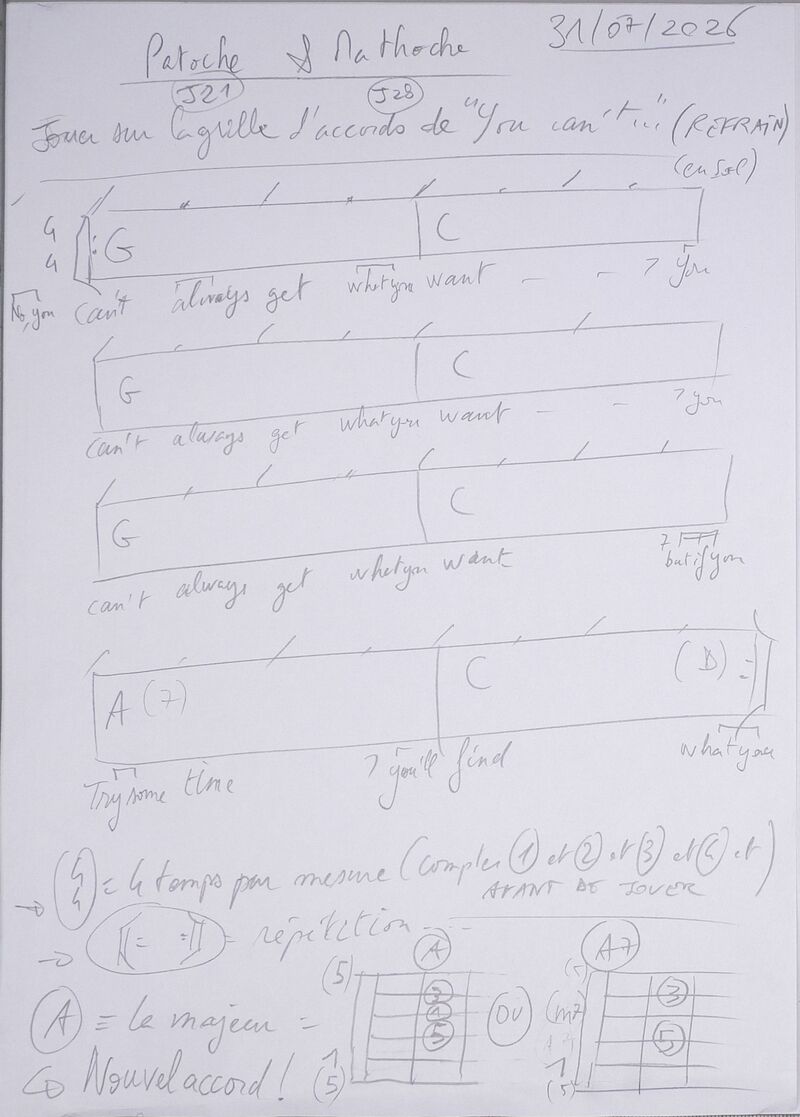 31/07/2026
Patoche & Mathoche
J21 J28
Jouer sur la grille d'accords de "You can't..." (REFRAIN)
(en Sol)
4
4
G C
No, you can't always get what you want - - 7 You
G C
can't always get what you want - - 7 you
G C
can't always get what you want 7 but if you
A (7) C (D)
Try some time 7 you'll find what you
→ 4/4 = 4 temps par mesure (compter 1 et 2 et 3 et 4 et)
AVANT DE JOUER
→ = répétition ...
A A7
(5) (5)
A = la majeur = OU (m7
3 3
4
5 5
1 1
(5) (5)
↪ Nouvel accord !